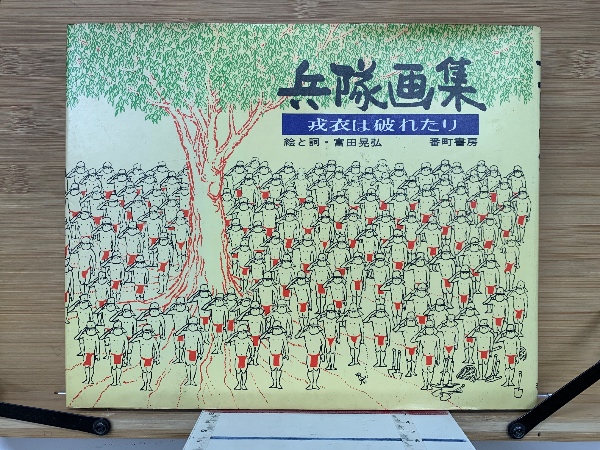 兵隊画集
戎衣は破れたり
絵と詞・富田晃弘 番町書房